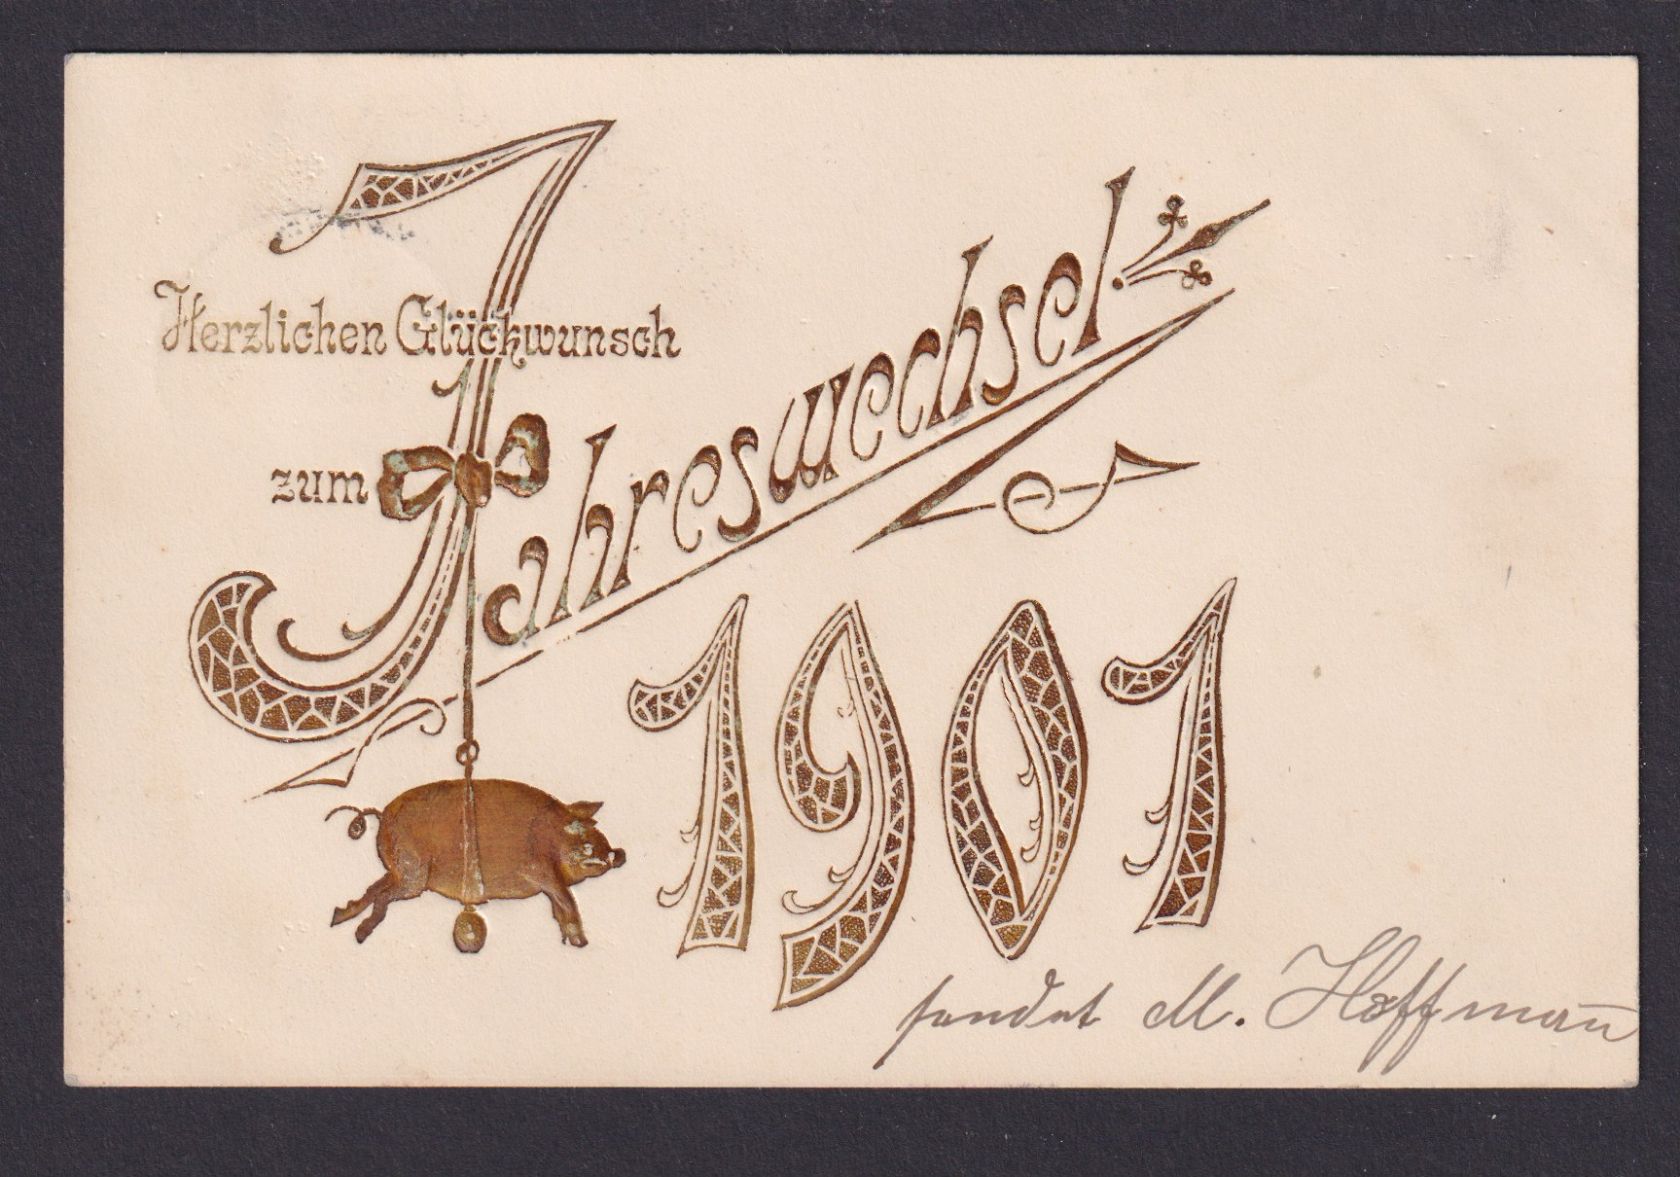 Herzlichen Glückwunsch
zum Jahreswechsel.
1901
sendet M. Hoffmañ